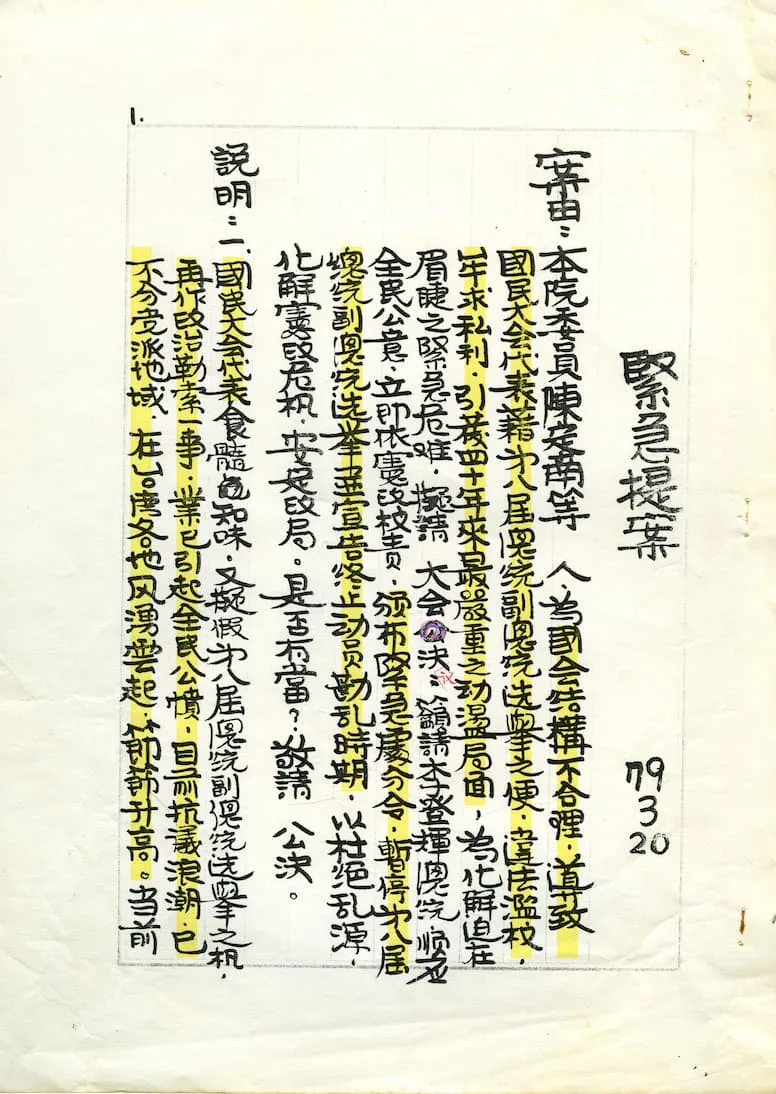 1.
緊急提案
79
3
20
案由：本院委員陳定南等　人，為國会结構不合理，導致
國民大会代表藉第八届總统副總统选舉之便，違法濫权，
牟求私利，引发四十年來最嚴重之动盪局面，為化解迫在
眉睫之緊急危难，擬請　大会決：籲請李登輝總统順应
全民公意，立即依憲政权责，颁布緊急處分令，暫停第八届
總统副總统选举並宣告终止动员勘乱時期，以杜绝乱源，
化解憲政危机，安定政局。是否有當？敬請　公決。
説明：一、國民大会代表食髓知味，又擬假第八届總统副總统选舉之机，
再作政治勒索一事，業已引起全民公憤，目前抗議浪潮，已
不分党派地域，在台湾各地风湧雲起，節節升高。当前